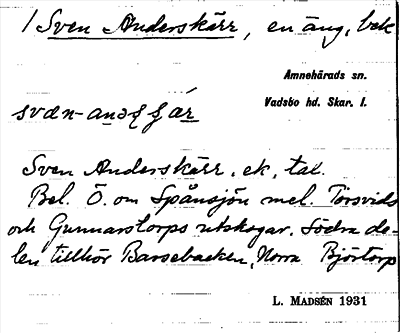 1 Sven Anderskärr, en äng, bek
Amnehärads sn.
Vadsbo hd. Skar. l.
Sven Anderskärr, ek, tal.
Bel. Ö. om Spånsjön mel. Torsvids
och Gunnarstorps utskogar. Södra de-
len tillhör Barsebacken, Norra Björtorp
L. MADSÉN 1931